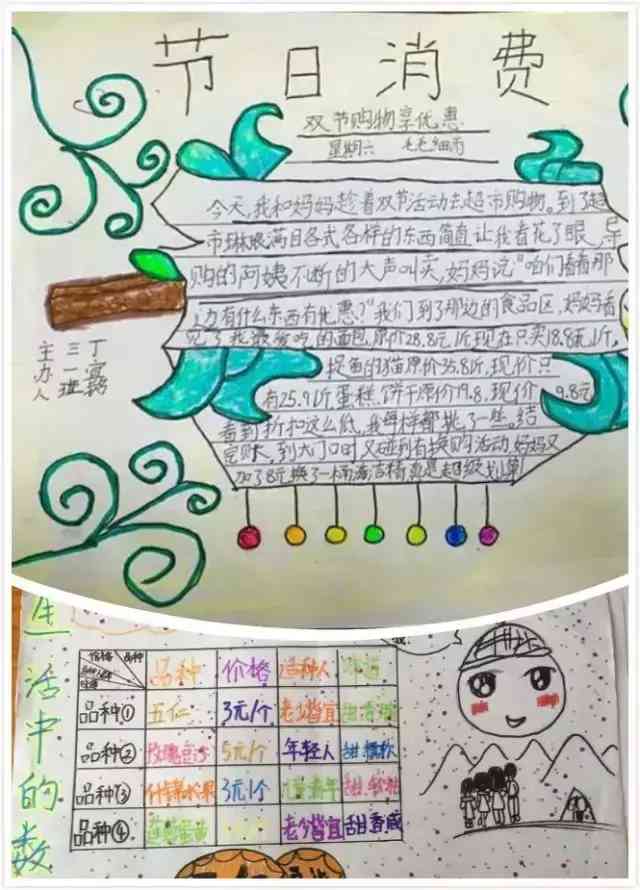 节日消费
双节购物享优惠
星期六 毛毛细雨
今天,我和妈妈趁着双节活动去超市购物。到了超
市琳琅满目各式各样的东西简直让我看花了眼,导
购的阿姨不断的大声叫卖,妈妈说“咱们看看那
边有什么东西有优惠?”我们到了那边的食品区,妈妈看
见了我最爱吃的面包,原价28.8元1斤现在只买18.8元1斤,
捉鱼的猫原价35.8斤,现价只
有25.91斤,蛋糕,饼干原价19.8,现价 9.8元
看到折扣这么低,我每样都挑了一些。结
完账,到大门口时又碰到有换购活动,妈妈又
加了8元换了一桶 真是超级划算
主办人
三一班
丁
生活中的数
价格 品种
品种 价格 适种人 味道
品种① 五仁 3元/个 老少皆宜
品种② 玫瑰豆沙 5元/个 年轻人 甜
品种③ 什锦水果 3元/个
品种④ 老少皆宜 甜香咸